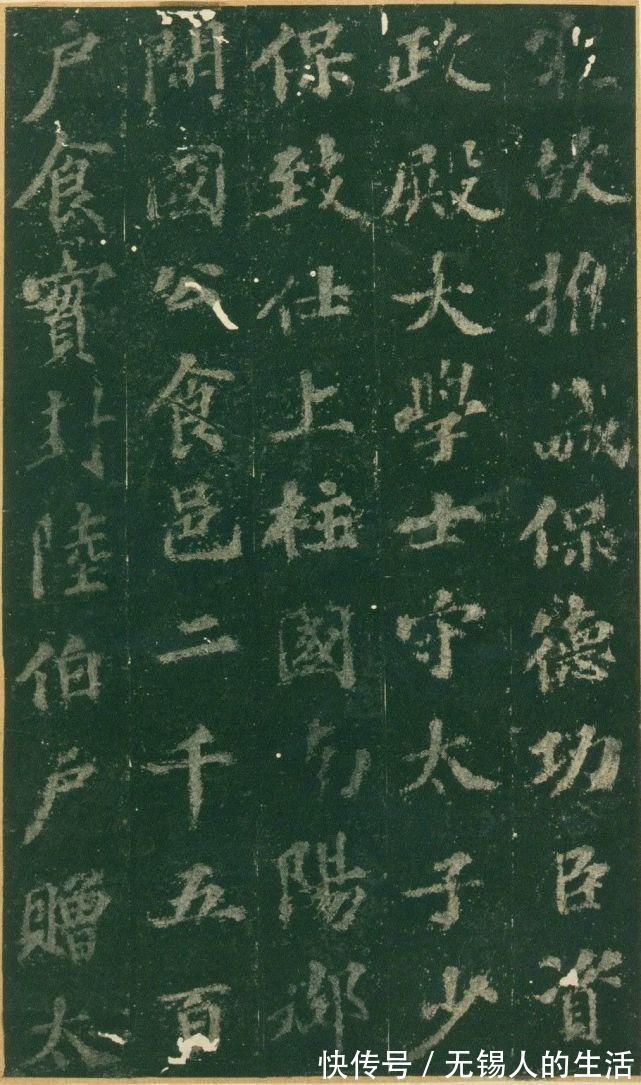 宋故推誠保德功臣資
政殿大學士守太子少
保致仕上柱國南陽郡
開國公食邑二千五百
户食實封陸伯户贈太
快传号 / 无锡人的生活